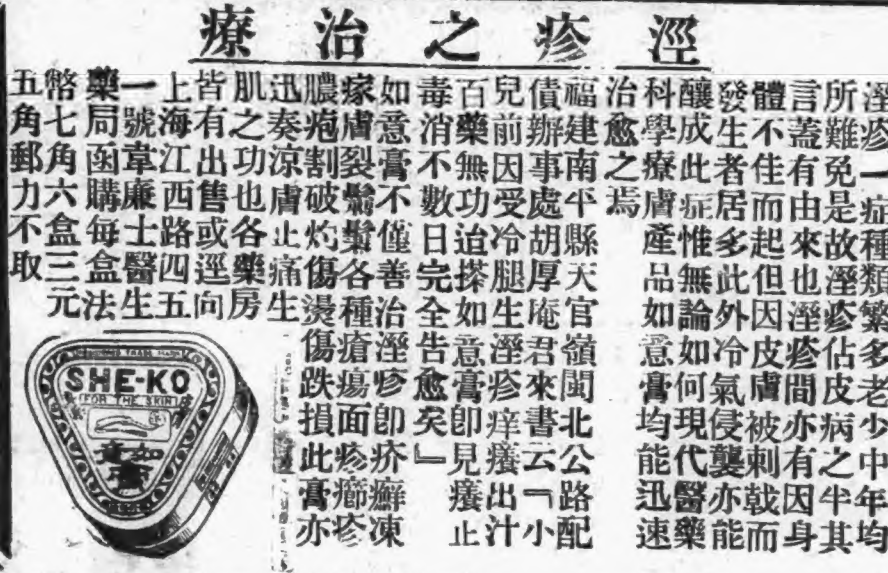 溼疹之治療
溼疹一症種類繁多老少中年均
所難免是故溼疹佔皮病之半其
言蓋有由來也溼疹間亦有因身
體不佳而起但因皮膚被刺戟而
發生者居多此外冷氣侵襲亦能
釀成此症惟無論如何現代醫藥
科學療膚產品如意膏均能迅速
治愈之焉
福建南平縣天官嶺閩北公路配
債辦事處胡厚庵君來書云『小
兒前因受冷腿生溼疹痒癢出汁
百藥無功迨搽如意膏即見癢止
毒消不數日完全告愈矣』
如意膏不僅善治溼疹即疥癬凍
瘃膚裂鬎鬁各種瘡瘍面疹癤疹
膿疱割破灼傷燙傷跌損此膏亦
迅奏涼膚止痛生
肌之功也各藥房
皆有出售或逕向
上海江西路四五
一號韋廉士醫生
藥局函購每盒法
幣七角六盒三元
五角郵力不取
TRADE MARK
SHE-KO
(FOR THE SKIN)
如意
膏